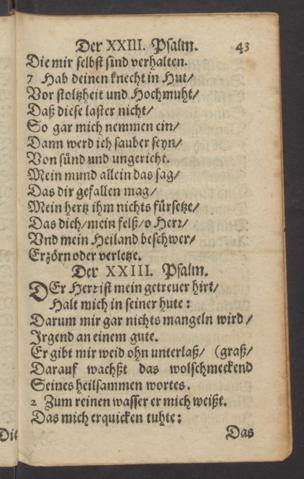 Der XXIII. Psalm. 43
Die mir selbst sind verhalten.
7 Hab deinen knecht in Hut/
Vor stoltzheit und Hochmuht/
Daß diese laster nicht/
So gar mich nemmen ein/
Dann werd ich sauber seyn/
Von sünd und ungericht.
Mein mund allein das sag/
Das dir gefallen mag/
Mein hertz ihm nichts fürsetze/
Das dich/mein felß/o Herr/
Vnd mein Heiland beschwer/
Erzörn oder verletze.
Der XXIII. Psalm.
DEr Herr ist mein getreuer hirt/
Halt mich in seiner hute:
Darum mir gar nichts mangeln wird/
Jrgend an einem gute.
Er gibt mir weid ohn unterlaß/ (graß/
Darauf wachßt das wolschmeckend
Seines heilsammen wortes.
2 Zum reinen wasser er mich weißt.
Das mich erquicken tuhte:
Das
Die